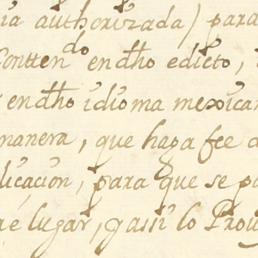 ia authorizada) para
Conttendo en dho edicto,
en dho idioma mexican
manera, que haga fee d
licacion, para que se po
é lugar, q assi lo Prov